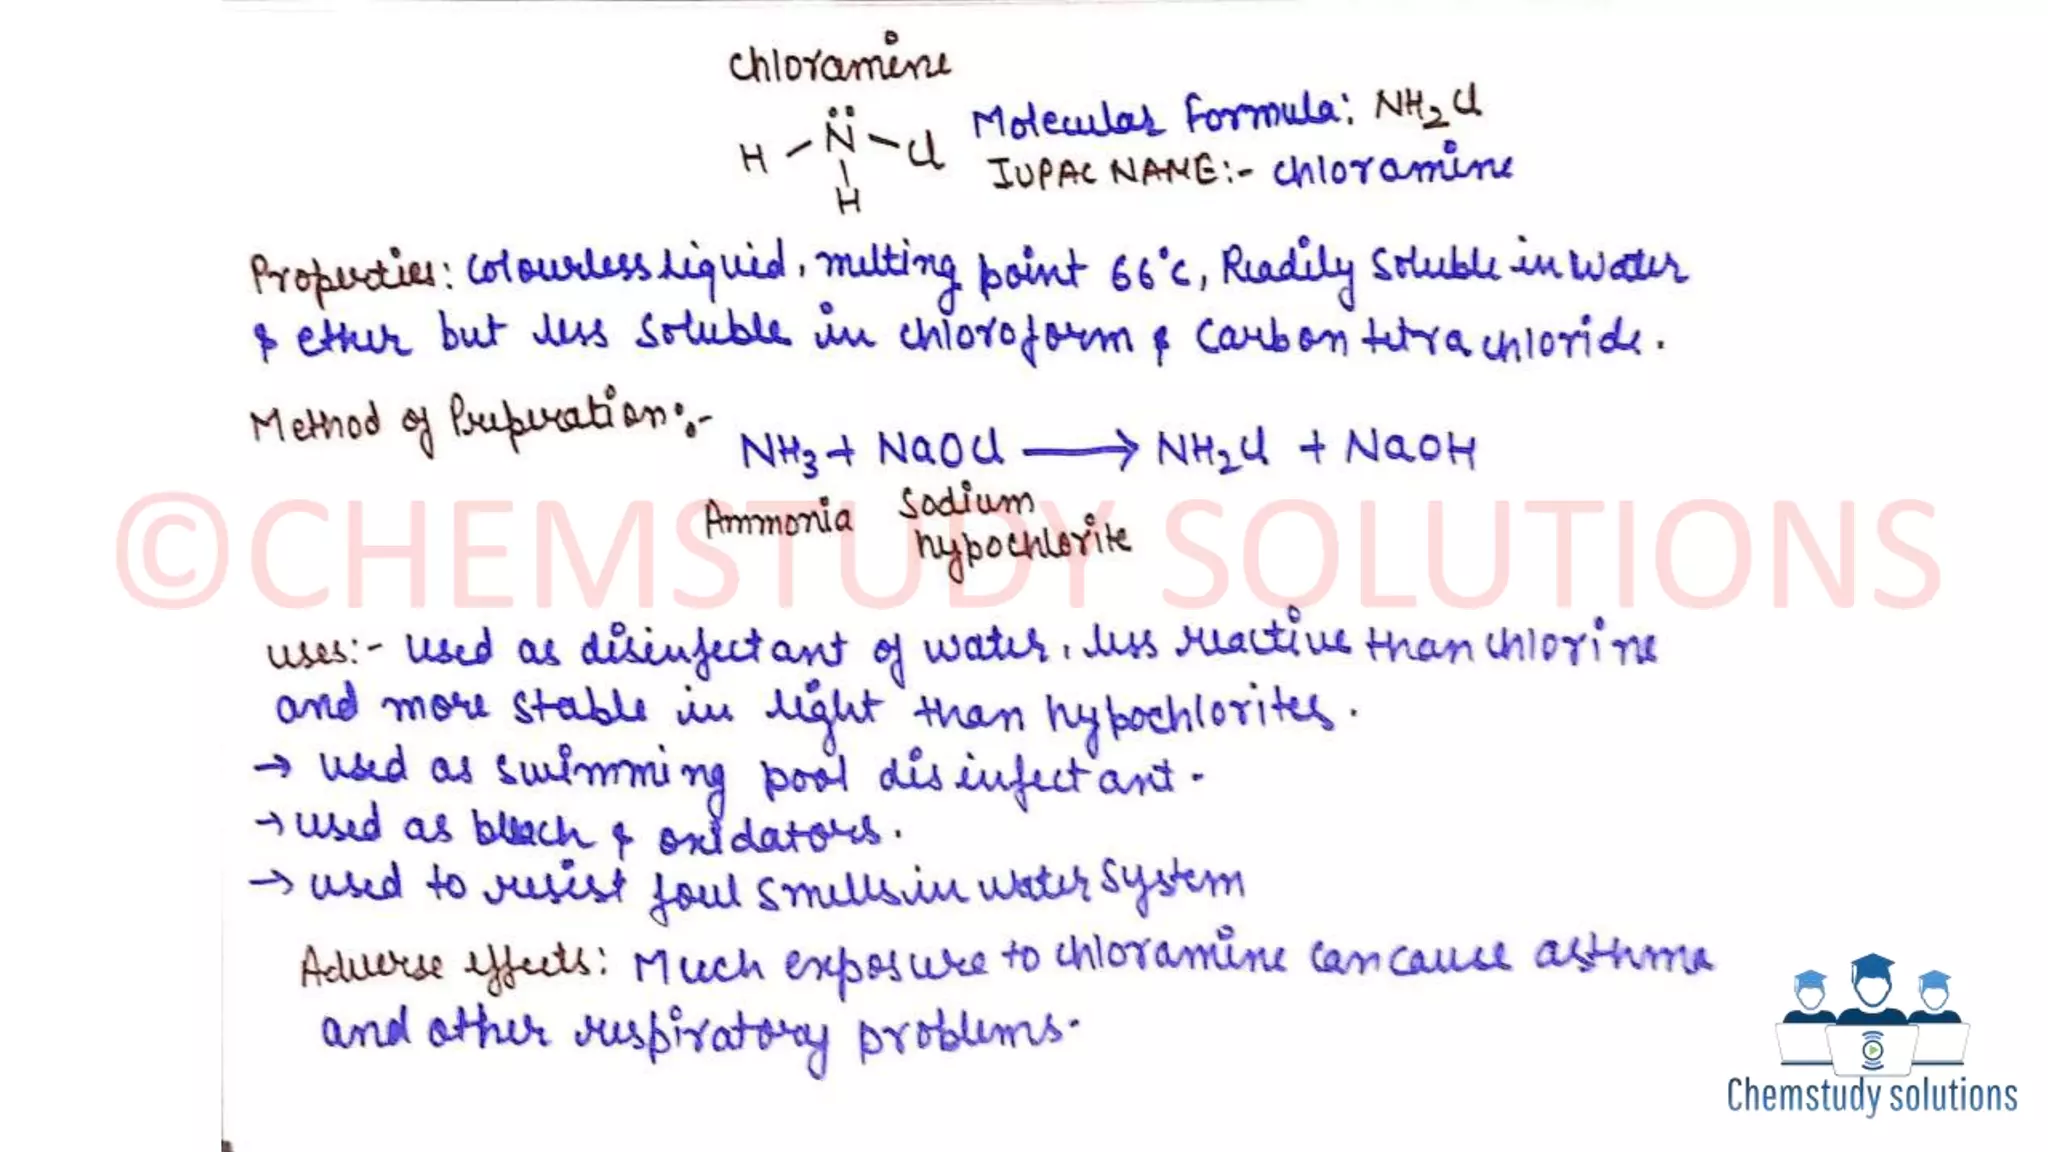 Chloramine
H – N̈ – Cl
H
Molecular Formula: NH₂Cl
IUPAC NAME:- Chloramine
Properties: Colourless liquid, melting point 66°C, Readily soluble in water
& ether but less soluble in chloroform & Carbon tetrachloride.
Method of Preperation:-
NH₃ + NaOCl ⟶ NH₂Cl + NaOH
Ammonia Sodium
hypochlorite
©CHEMSTUDY SOLUTIONS
uses:- used as disinfectant of water, less reactive than chlorine
and more stable in light than hypochlorites.
→ used as swimming pool disinfectant.
→ used as bleach & oxidators.
→ used to resist foul smells in water system
Adverse effects: Much exposure to chloramine can cause asthma
and other respiratory problems.
Chemstudy solutions